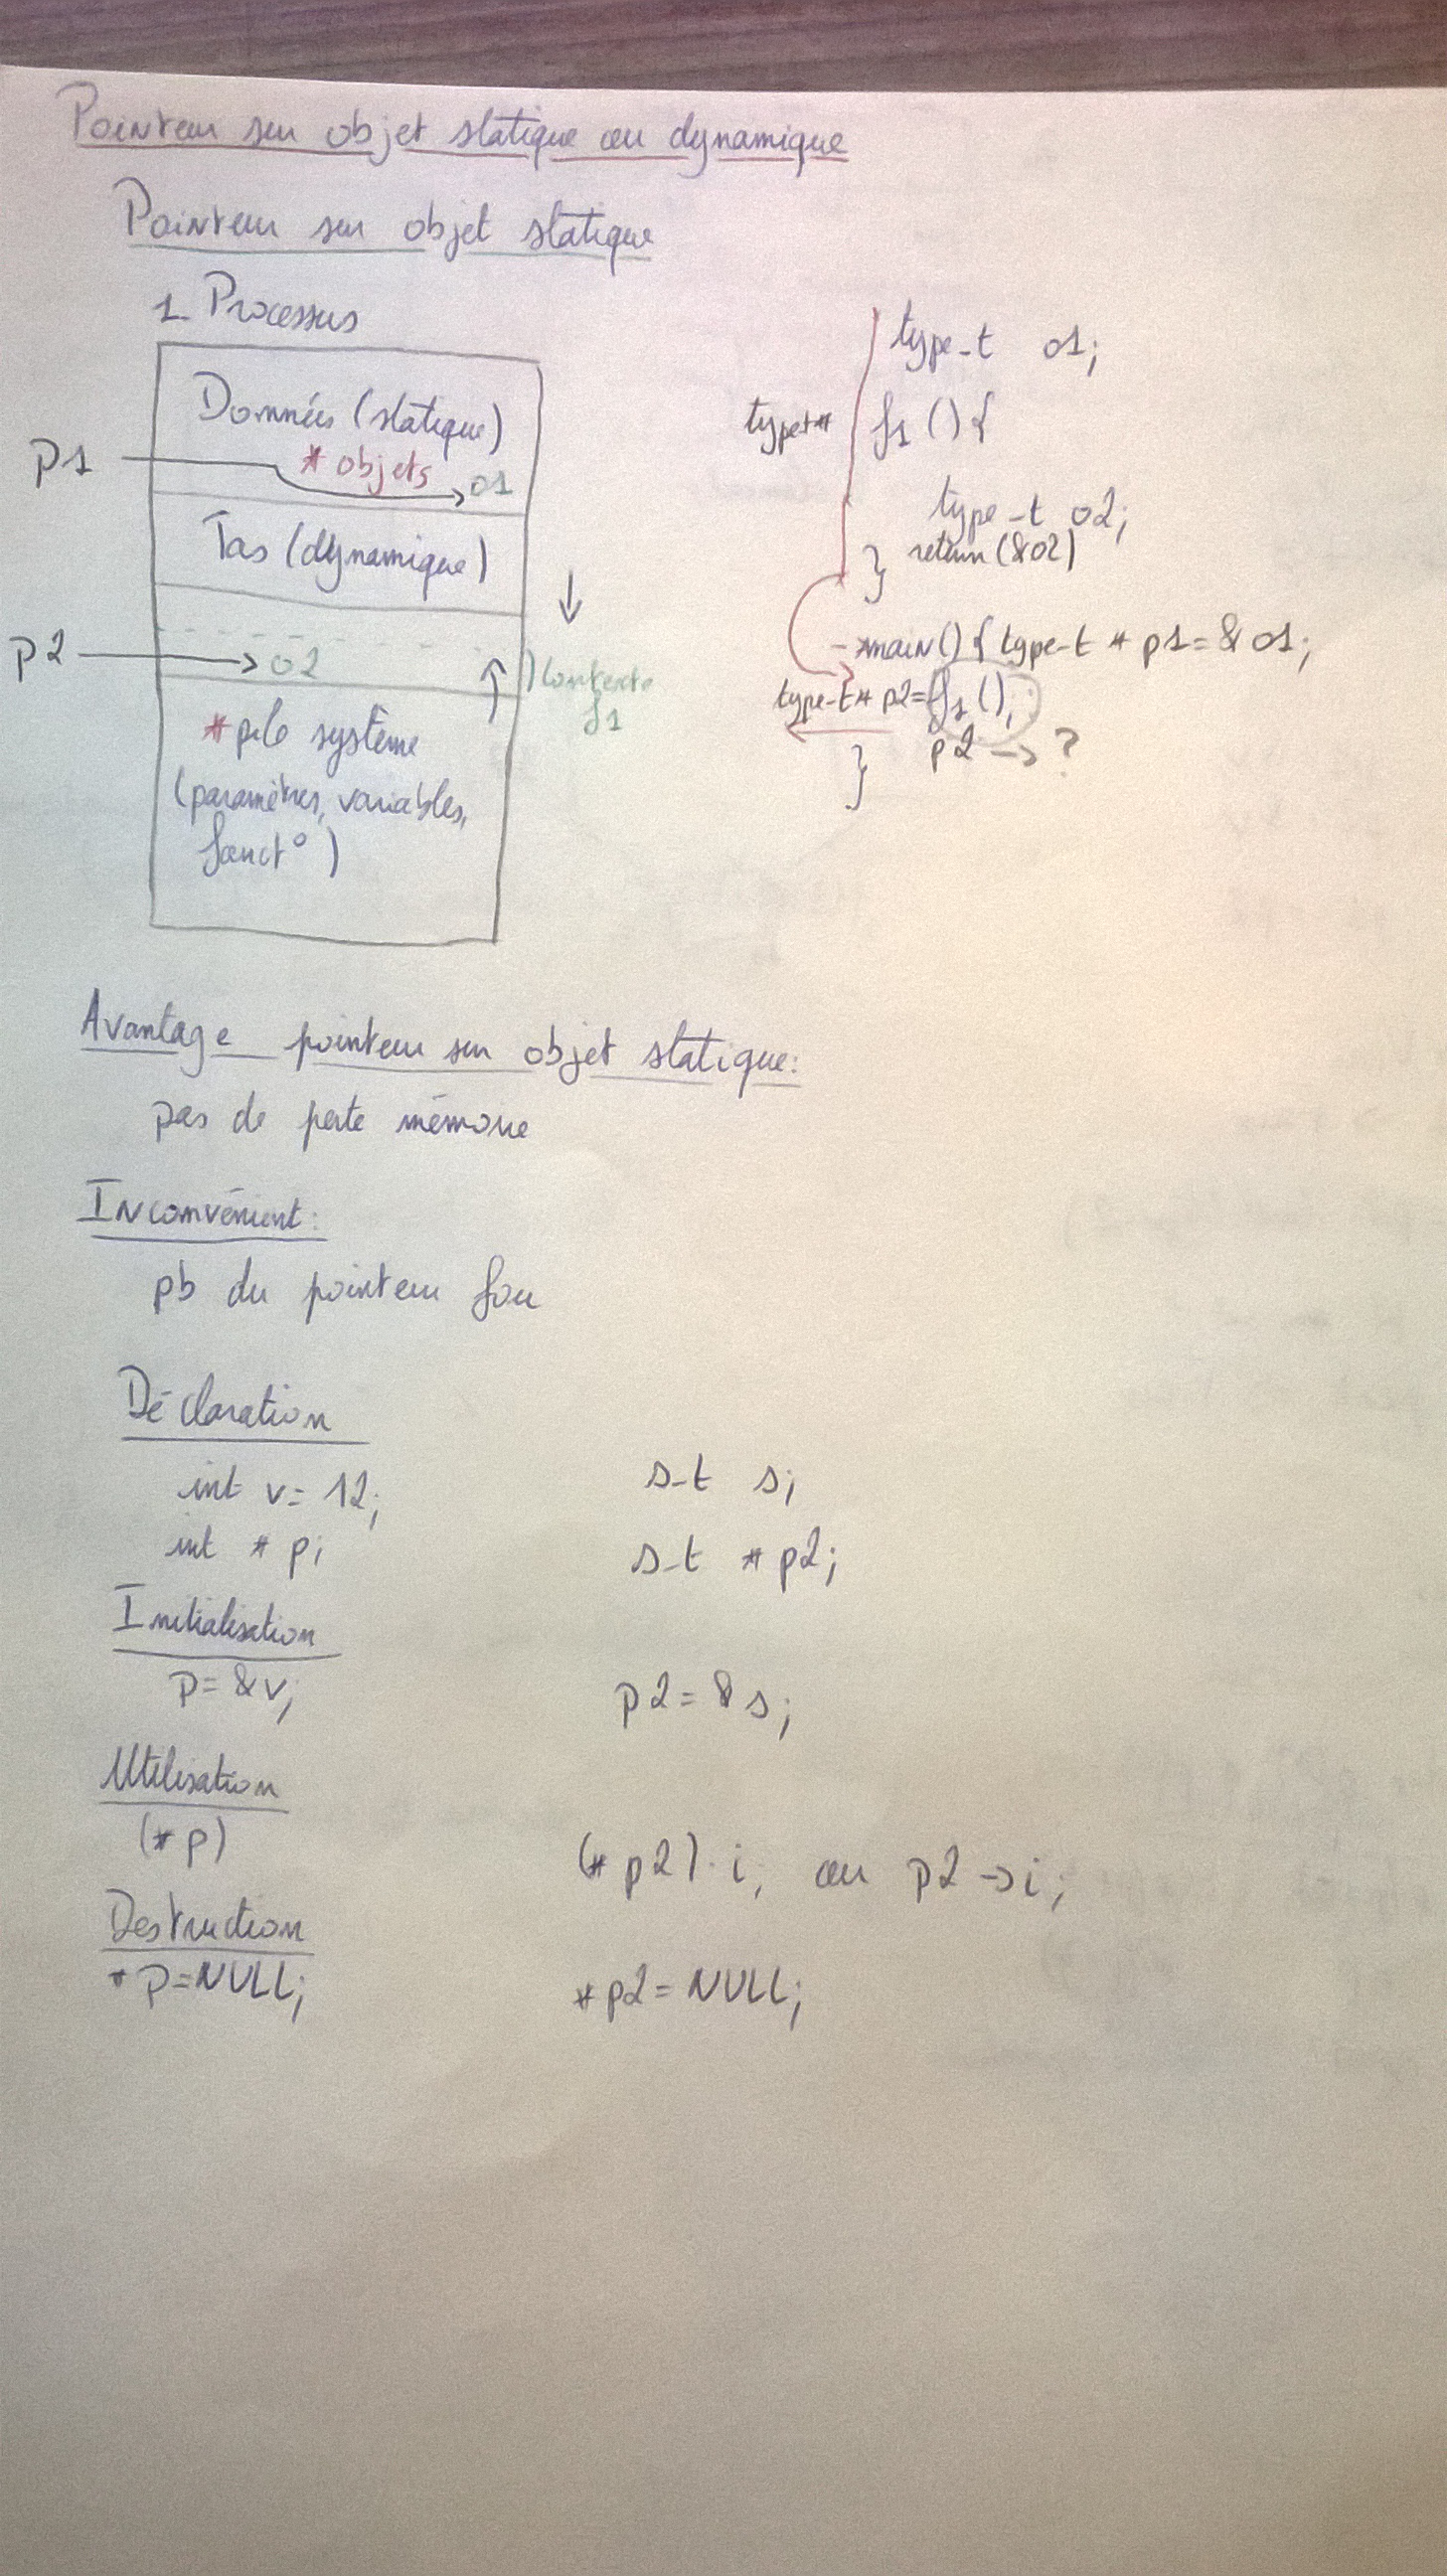 Pointeur sur objet statique ou dynamique
Pointeur sur objet statique
1 Processus
Données (statique)
* objets
o1
p1
Tas (dynamique)
p2
o2
Contexte
f1
*pile système
(paramètres, variables,
fonct°)
type_t o1;
type_t* f1 () {
type_t o2;
} return (&o2)
- main() { type_t * p1 = & o1;
type_t* p2 = f1();
p2 → ?
}
Avantage pointeur sur objet statique:
pas de perte mémoire
Inconvénient:
pb du pointeur fou
Déclaration
int v = 12;
s_t s;
int * p;
s_t * p2;
Initialisation
p = &v;
p2 = & s;
Utilisation
(* p)
(* p2).i; ou p2 → i;
Destruction
* p = NULL;
* p2 = NULL;